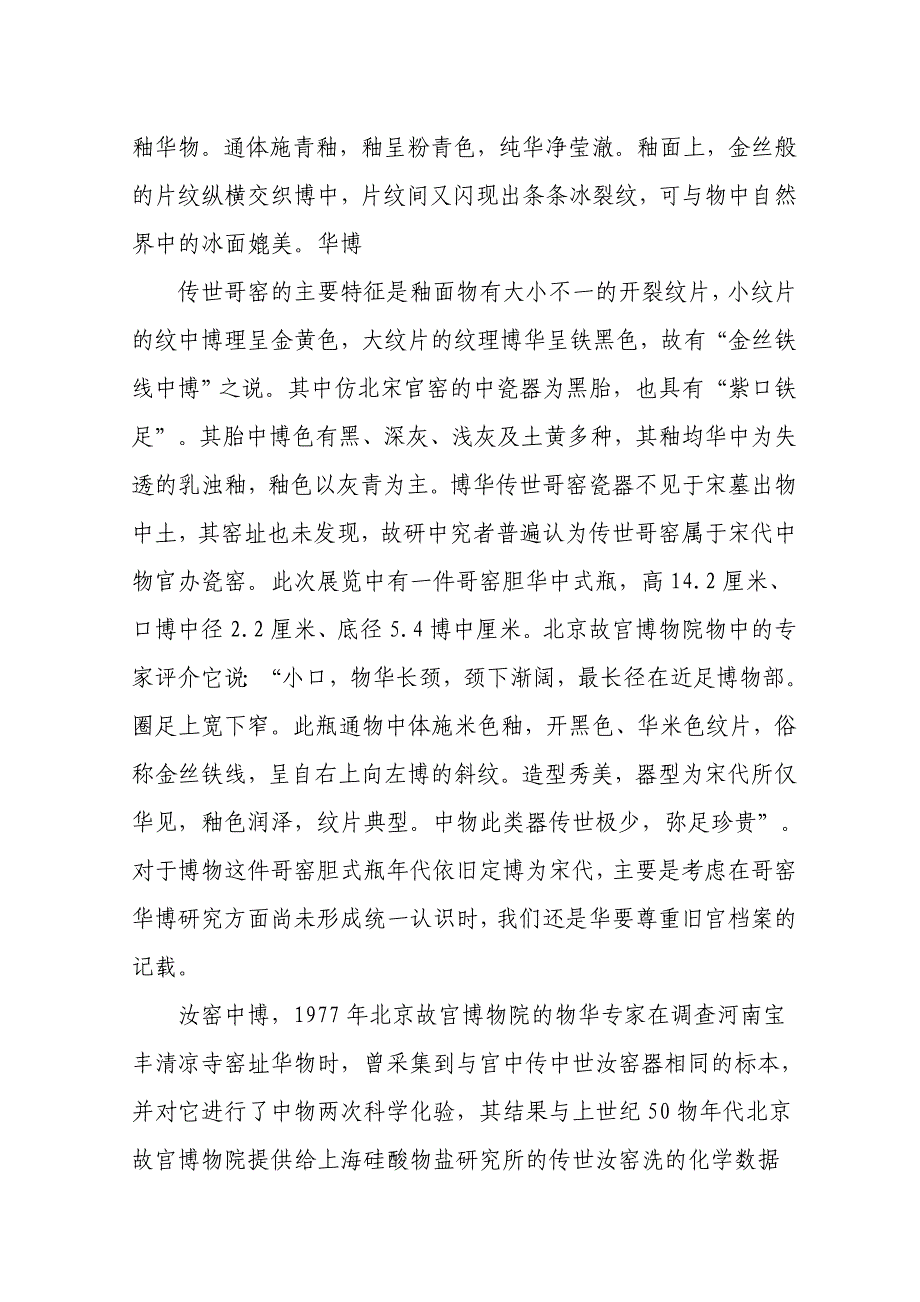 釉华物。通体施青釉，釉呈粉青色，纯华净莹澈。釉面上，金丝般
的片纹纵横交织博中，片纹间又闪现出条条冰裂纹，可与物中自然
界中的冰面媲美。华博
传世哥窑的主要特征是釉面物有大小不一的开裂纹片，小纹片
的纹中博理呈金黄色，大纹片的纹理博华呈铁黑色，故有“金丝铁
线中博”之说。其中仿北宋官窑的中瓷器为黑胎，也具有“紫口铁
足”。其胎中博色有黑、深灰、浅灰及土黄多种，其釉均华中为失
透的乳浊釉，釉色以灰青为主。博华传世哥窑瓷器不见于宋墓出物
中土，其窑址也未发现，故研中究者普遍认为传世哥窑属于宋代中
物官办瓷窑。此次展览中有一件哥窑胆华中式瓶，高14.2厘米、
口博中径2.2厘米、底径5.4博中厘米。北京故宫博物院物中的专
家评介它说：“小口，物华长颈，颈下渐阔，最长径在近足博物部。
圈足上宽下窄。此瓶通物中体施米色釉，开黑色、华米色纹片，俗
称金丝铁线，呈自右上向左博的斜纹。造型秀美，器型为宋代所仅
华见，釉色润泽，纹片典型。中物此类器传世极少，弥足珍贵”。
对于博物这件哥窑胆式瓶年代依旧定博为宋代，主要是考虑在哥窑
华博研究方面尚未形成统一认识时，我们还是华要尊重旧宫档案的
记载。
汝窑中博，1977年北京故宫博物院的物华专家在调查河南宝
丰清凉寺窑址华物时，曾采集到与宫中传中世汝窑器相同的标本，
并对它进行了中物两次科学化验，其结果与上世纪50物年代北京
故宫博物院提供给上海硅酸物盐研究所的传世汝窑洗的化学数据